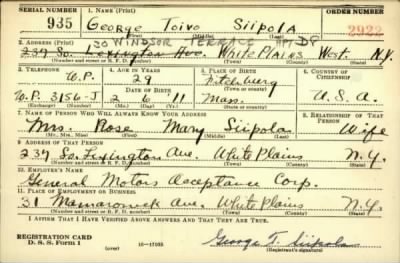 SERIAL NUMBER 935
ORDER NUMBER
1. NAME (Print) George Toivo Siipola
(First) (Middle) (Last)
30 WINDSOR TERRACE WP DP
2. ADDRESS (Print) 239 So. Lexington Ave. White Plains West. N.Y.
(Number and street or R. F. D. number) (Town) (County) (State)
3. TELEPHONE W.P.
4. AGE IN YEARS 29
5. PLACE OF BIRTH Fitchburg
6. COUNTRY OF CITIZENSHIP
DATE OF BIRTH
W.P. 3156-J 2 6 '11 Mass. U.S.A.
(Exchange) (Number) (Mo.) (Day) (Yr.) (State or country)
7. NAME OF PERSON WHO WILL ALWAYS KNOW YOUR ADDRESS
8. RELATIONSHIP OF THAT PERSON
Mrs. Rose Mary Siipola Wife
(Mr., Mrs., Miss) (First) (Middle) (Last)
9. ADDRESS OF THAT PERSON
239 So. Lexington Ave. White Plains N.Y.
(Number and street or R. F. D. number) (Town) (County) (State)
10. EMPLOYER'S NAME
General Motors Acceptance Corp.
11. PLACE OF EMPLOYMENT OR BUSINESS
31 Mamaroneck Ave. White Plains N.Y.
(Number and street or R. F. D. number) (Town) (County) (State)
I AFFIRM THAT I HAVE VERIFIED ABOVE ANSWERS AND THAT THEY ARE TRUE.
REGISTRATION CARD
D. S. S. Form 1 16-17105 George T. Siipola
(Registrant's signature)